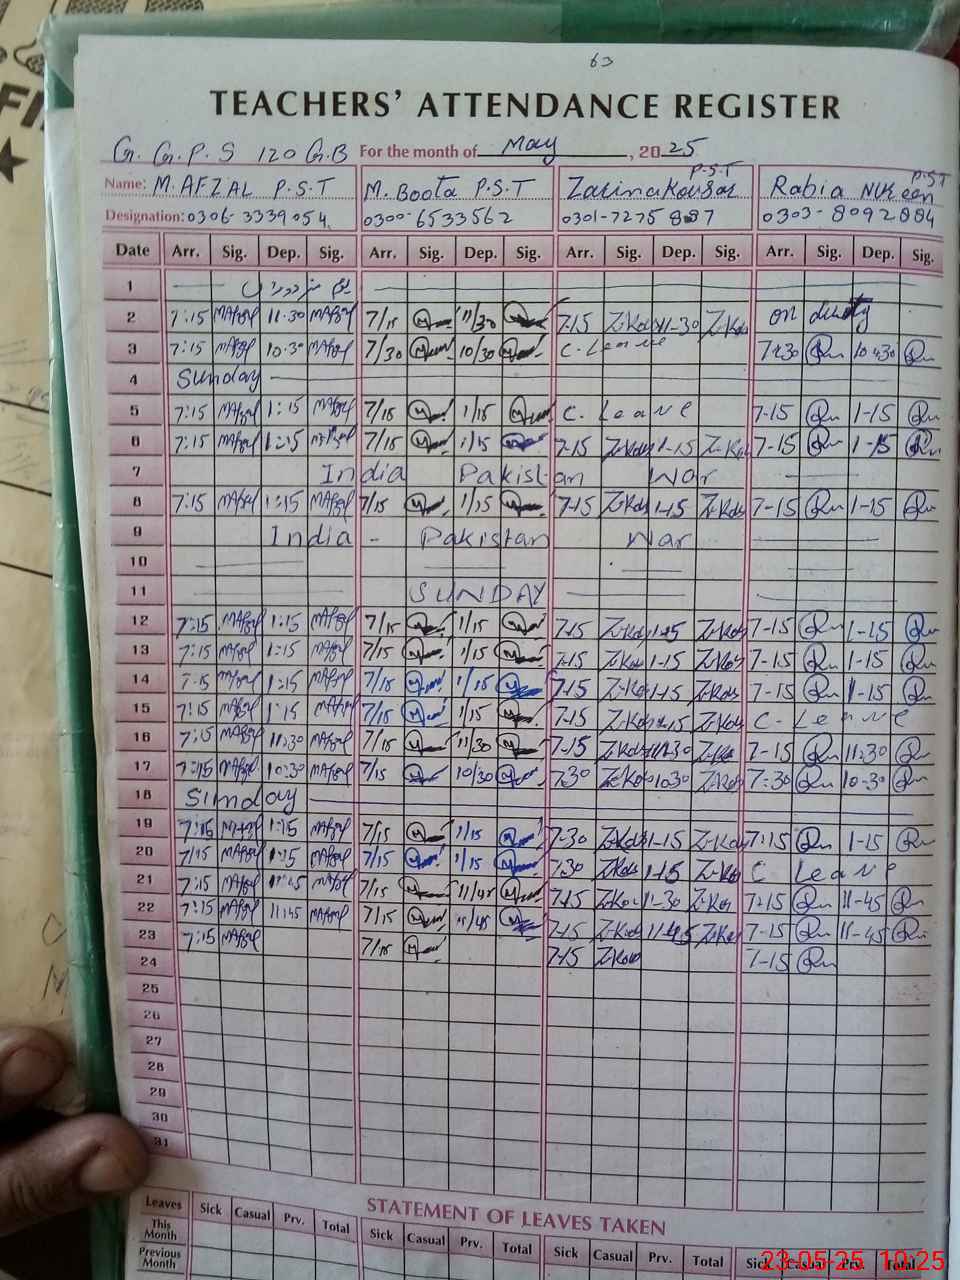 63
TEACHERS' ATTENDANCE REGISTER
G. G.P.S 120 G.B For the month of May, 2025
Name: M. AFZAL P.S.T M. Boota P.S.T Zarina Kausar P.S.T Rabia P.S.T
Designation: 0306-3339054 0300-6533562 0301-7275887 0303-8092884
Date Arr. Sig. Dep. Sig. Arr. Sig. Dep. Sig. Arr. Sig. Dep. Sig. Arr. Sig. Dep. Sig.
1
2 7:15 MAfzal 11.30 MAfzal 7/15 11/30 7-15 Z-Kous 11-30 Z-Kous on duty
3 7:15 MAfzal 10.30 MAfzal 7/30 10/30 C. Leave 7:30 10:30
4 Sunday
5 7:15 MAfzal 1:15 MAfzal 7/15 1/15 C. Leave 7-15 1-15
6 7:15 MAfzal 1:15 MAfzal 7/15 1/15 7-15 Z-Kous 1-15 Z-Kous 7-15 1-15
7 India Pakistan War
8 7:15 MAfzal 1:15 MAfzal 7/15 1/15 7-15 Z-Kous 1-15 Z-Kous 7-15 1-15
9 India - Pakistan War
10
11 SUNDAY
12 7:15 MAfzal 1:15 MAfzal 7/15 1/15 7-15 Z-Kous 1-15 Z-Kous 7-15 1-15
13 7:15 MAfzal 1:15 MAfzal 7/15 1/15 7-15 Z-Kous 1-15 Z-Kous 7-15 1-15
14 7:15 MAfzal 1:15 MAfzal 7/15 1/15 7-15 Z-Kous 1-15 Z-Kous 7-15 1-15
15 7:15 MAfzal 1:15 MAfzal 7/15 1/15 7-15 Z-Kous 1-15 Z-Kous C. Leave
16 7:15 MAfzal 11:30 MAfzal 7/15 11/30 7-15 Z-Kous 11-30 Z-Kous 7-15 11:30
17 7:15 MAfzal 10:30 MAfzal 7/15 10/30 7-30 Z-Kous 10-30 Z-Kous 7:30 10-30
18 Sunday
19 7:15 MAfzal 1:15 MAfzal 7/15 1/15 7-30 Z-Kous 1-15 Z-Kous 7:15 1-15
20 7:15 MAfzal 1:15 MAfzal 7/15 1/15 7-30 Z-Kous 1-15 Z-Kous C Leave
21 7:15 MAfzal 11:45 MAfzal 7/15 11/45 7-15 Z-Kous 11-30 Z-Kous 7-15 11-45
22 7:15 MAfzal 11:45 MAfzal 7/15 11/45 7-15 Z-Kous 11-45 Z-Kous 7-15 11-45
23 7:15 MAfzal 7/15 7-15 Z-Kous 7-15
24
25
26
27
28
29
30
31
STATEMENT OF LEAVES TAKEN
Leaves Sick Casual Prv. Total Sick Casual Prv. Total Sick Casual Prv. Total Sick Casual Prv. Total
This Month
Previous Month
23-05-25 10:25